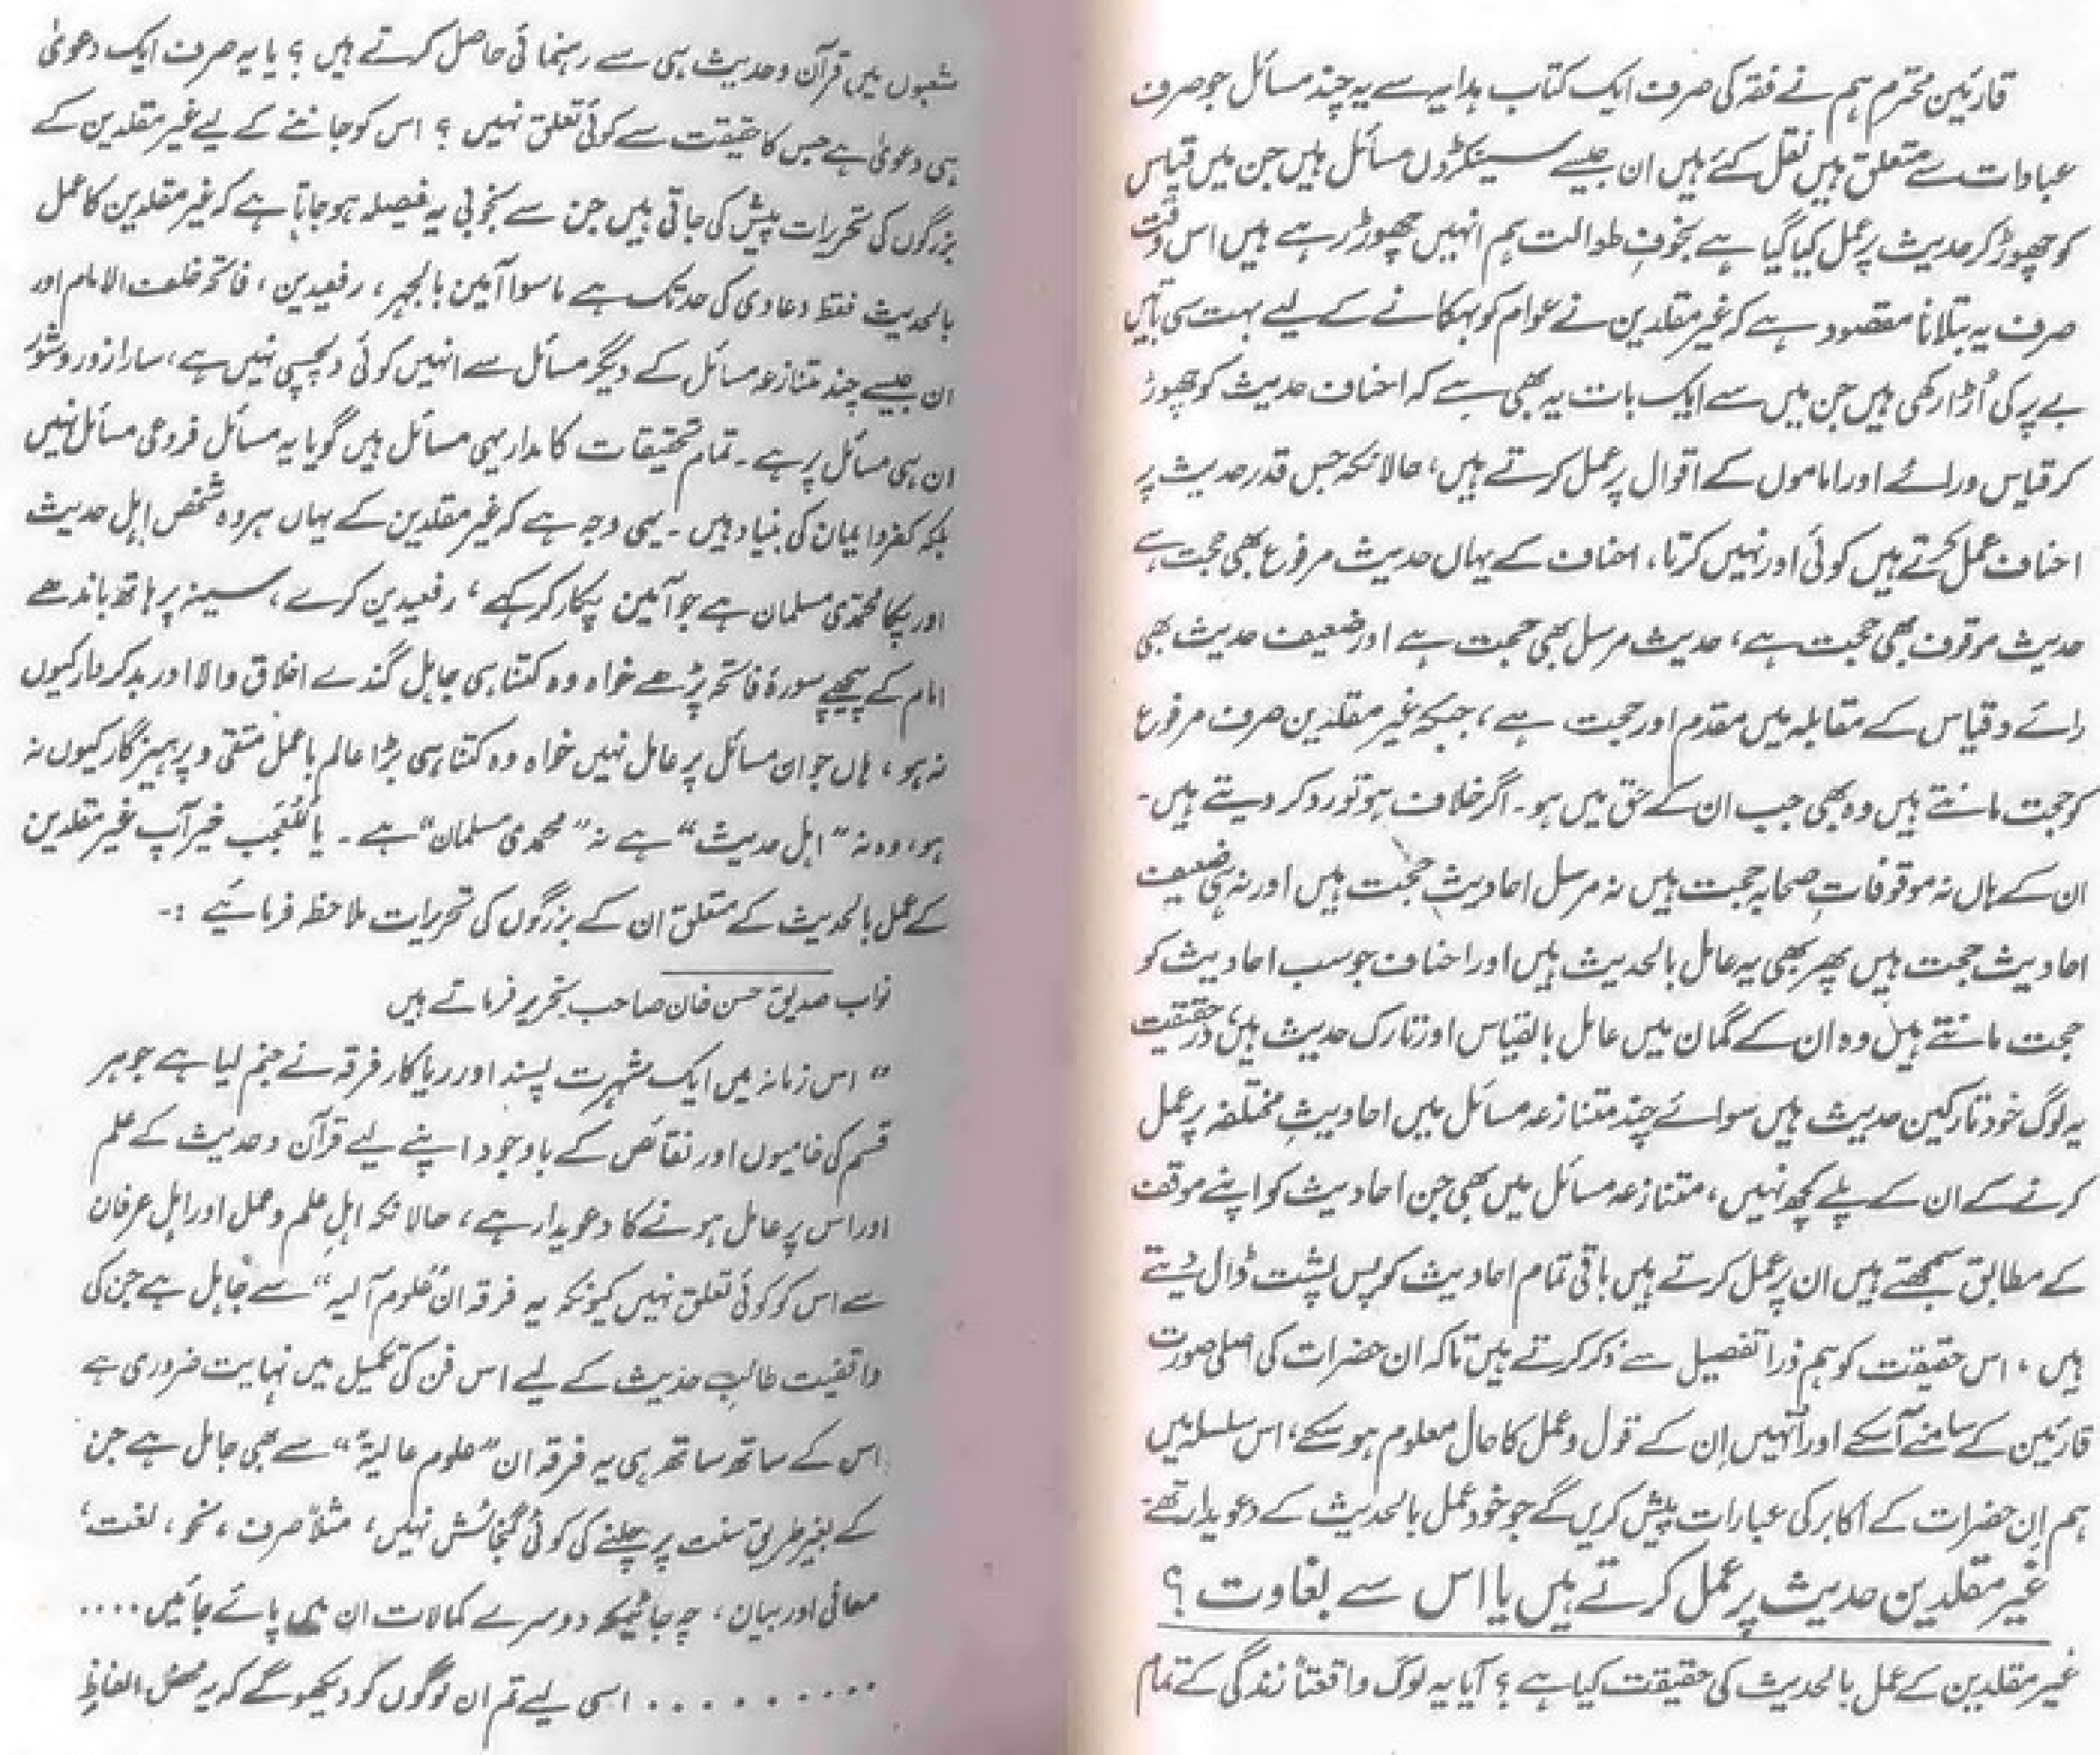 قارئین محترم ہم نے فقہ کی صرف ایک کتاب ہدایہ سے یہ چند مسائل جو صرف
عبادات سے متعلق ہیں نقل کئے ہیں ان جیسے سینکڑوں مسائل ہیں جن میں قیاس
کو چھوڑ کر حدیث پر عمل کیا گیا ہے بخوفِ طوالت ہم انہیں چھوڑ رہے ہیں اس وقت
صرف یہ بتلانا مقصود ہے کہ غیر مقلدین نے عوام کو بہکانے کے لیے بہت سی باتیں
بے پر کی اُڑا رکھی ہیں جن میں سے ایک بات یہ بھی ہے کہ احناف حدیث کو چھوڑ
کر قیاس ورائے اور اماموں کے اقوال پر عمل کرتے ہیں، حالانکہ جس قدر حدیث پر
احناف عمل کرتے ہیں کوئی اور نہیں کرتا، احناف کے یہاں حدیث مرفوع بھی حجت ہے
حدیث موقوف بھی حجت ہے، حدیث مرسل بھی حجت ہے اور ضعیف حدیث بھی
رائے و قیاس کے مقابلہ میں مقدم اور حجت ہے، جبکہ غیر مقلدین صرف مرفوع
کو حجت مانتے ہیں وہ بھی جب ان کے حق میں ہو۔ اگر خلاف ہو تو رد کر دیتے ہیں۔
ان کے ہاں نہ موقوفاتِ صحابہ حجت ہیں نہ مرسل احادیث حجت ہیں اور نہ ہی ضعیف
احادیث حجت ہیں پھر بھی یہ عامل بالحدیث ہیں اور احناف جو سب احادیث کو
حجت مانتے ہیں وہ ان کے گمان میں عامل بالقیاس اور تارک حدیث ہیں، در حقیقت
یہ لوگ خود تارکین حدیث ہیں سوائے چند متنازعہ مسائل میں احادیثِ مختلفہ پر عمل
کرنے کے ان کے پلے کچھ نہیں، متنازعہ مسائل میں بھی جن احادیث کو اپنے موقف
کے مطابق سمجھتے ہیں ان پر عمل کرتے ہیں باقی تمام احادیث کو پس پشت ڈال دیتے
ہیں، اس حقیقت کو ہم ذرا تفصیل سے ذکر کرتے ہیں تاکہ ان حضرات کی اصلی صورت
قارئین کے سامنے آسکے اور اُنہیں اِن کے قول و عمل کا حال معلوم ہو سکے، اس سلسلہ میں
ہم اِن حضرات کے اکابر کی عبارات پیش کریں گے جو خود عمل بالحدیث کے دعویدار تھے۔
غیر مقلدین حدیث پر عمل کرتے ہیں یا اس سے بغاوت ؟
غیر مقلدین کے عمل بالحدیث کی حقیقت کیا ہے ؟ آیا یہ لوگ واقعتاً زندگی کے تمام
شعبوں میں قرآن و حدیث ہی سے رہنمائی حاصل کرتے ہیں ؟ یا یہ صرف ایک دعویٰ
ہی دعویٰ ہے جس کا حقیقت سے کوئی تعلق نہیں ؟ اس کو جاننے کے لیے غیر مقلدین کے
بزرگوں کی تحریرات پیش کی جاتی ہیں جن سے بخوبی یہ فیصلہ ہو جاتا ہے کہ غیر مقلدین کا عمل
بالحدیث فقط دعاوی کی حد تک ہے ماسوا آمین بالجہر، رفعیدین، فاتحہ خلف الامام اور
ان جیسے چند متنازعہ مسائل کے دیگر مسائل سے انہیں کوئی دلچسپی نہیں ہے، سارا زور و شور
ان ہی مسائل پر ہے۔ تمام تحقیقات کا مدار یہی مسائل ہیں گویا یہ مسائل فروعی مسائل نہیں
بلکہ کفر و ایمان کی بنیاد ہیں۔ یہی وجہ ہے کہ غیر مقلدین کے یہاں ہر وہ شخص اہل حدیث
اور پکا محمدی مسلمان ہے جو آمین پکار کر کہے، رفعیدین کرے، سینہ پر ہاتھ باندھے
امام کے پیچھے سورۂ فاتحہ پڑھے خواہ وہ کتنا ہی جاہل گندے اخلاق والا اور بدکردار کیوں
نہ ہو، ہاں جو ان مسائل پر عامل نہیں خواہ وہ کتنا ہی بڑا عالم باعمل متقی و پرہیزگار کیوں نہ
ہو، وہ نہ ”اہل حدیث“ ہے نہ ”محمدی مسلمان“ ہے۔ یاللعجب خیر آپ غیر مقلدین
کے عمل بالحدیث کے متعلق ان کے بزرگوں کی تحریرات ملاحظہ فرمائیے :-
نواب صدیق حسن خان صاحب تحریر فرماتے ہیں
” اس زمانہ میں ایک شہرت پسند اور ریاکار فرقہ نے جنم لیا ہے جو ہر
قسم کی خامیوں اور نقائص کے باوجود اپنے لیے قرآن و حدیث کے علم
اور اس پر عامل ہونے کا دعویدار ہے، حالانکہ اہلِ علم و عمل اور اہل عرفان
سے اس کو کوئی تعلق نہیں کیونکہ یہ فرقہ ان ”علوم آلیہ“ سے جاہل ہے جن کی
واقفیت طالبِ حدیث کے لیے اس فن کی تکمیل میں نہایت ضروری ہے
اس کے ساتھ ساتھ ہی یہ فرقہ ان ”علوم عالیہ“ سے بھی جاہل ہے جن
کے بغیر طریقِ سنت پر چلنے کی کوئی گنجائش نہیں، مثلاً صرف، نحو، لغت،
معانی اور بیان، چہ جائیکہ دوسرے کمالات ان میں پائے جائیں....
.......... اسی لیے تم ان لوگوں کو دیکھو گے کہ یہ محض الفاظِ